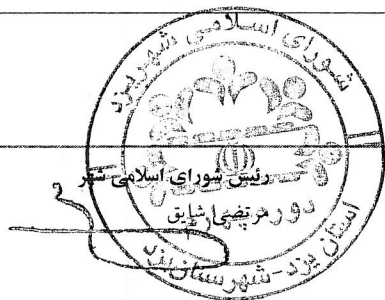 شورای اسلامی شهر یزد
رئیس شورای اسلامی شهر
مرتضی شایق
دوره
استان یزد-شهرستان یزد